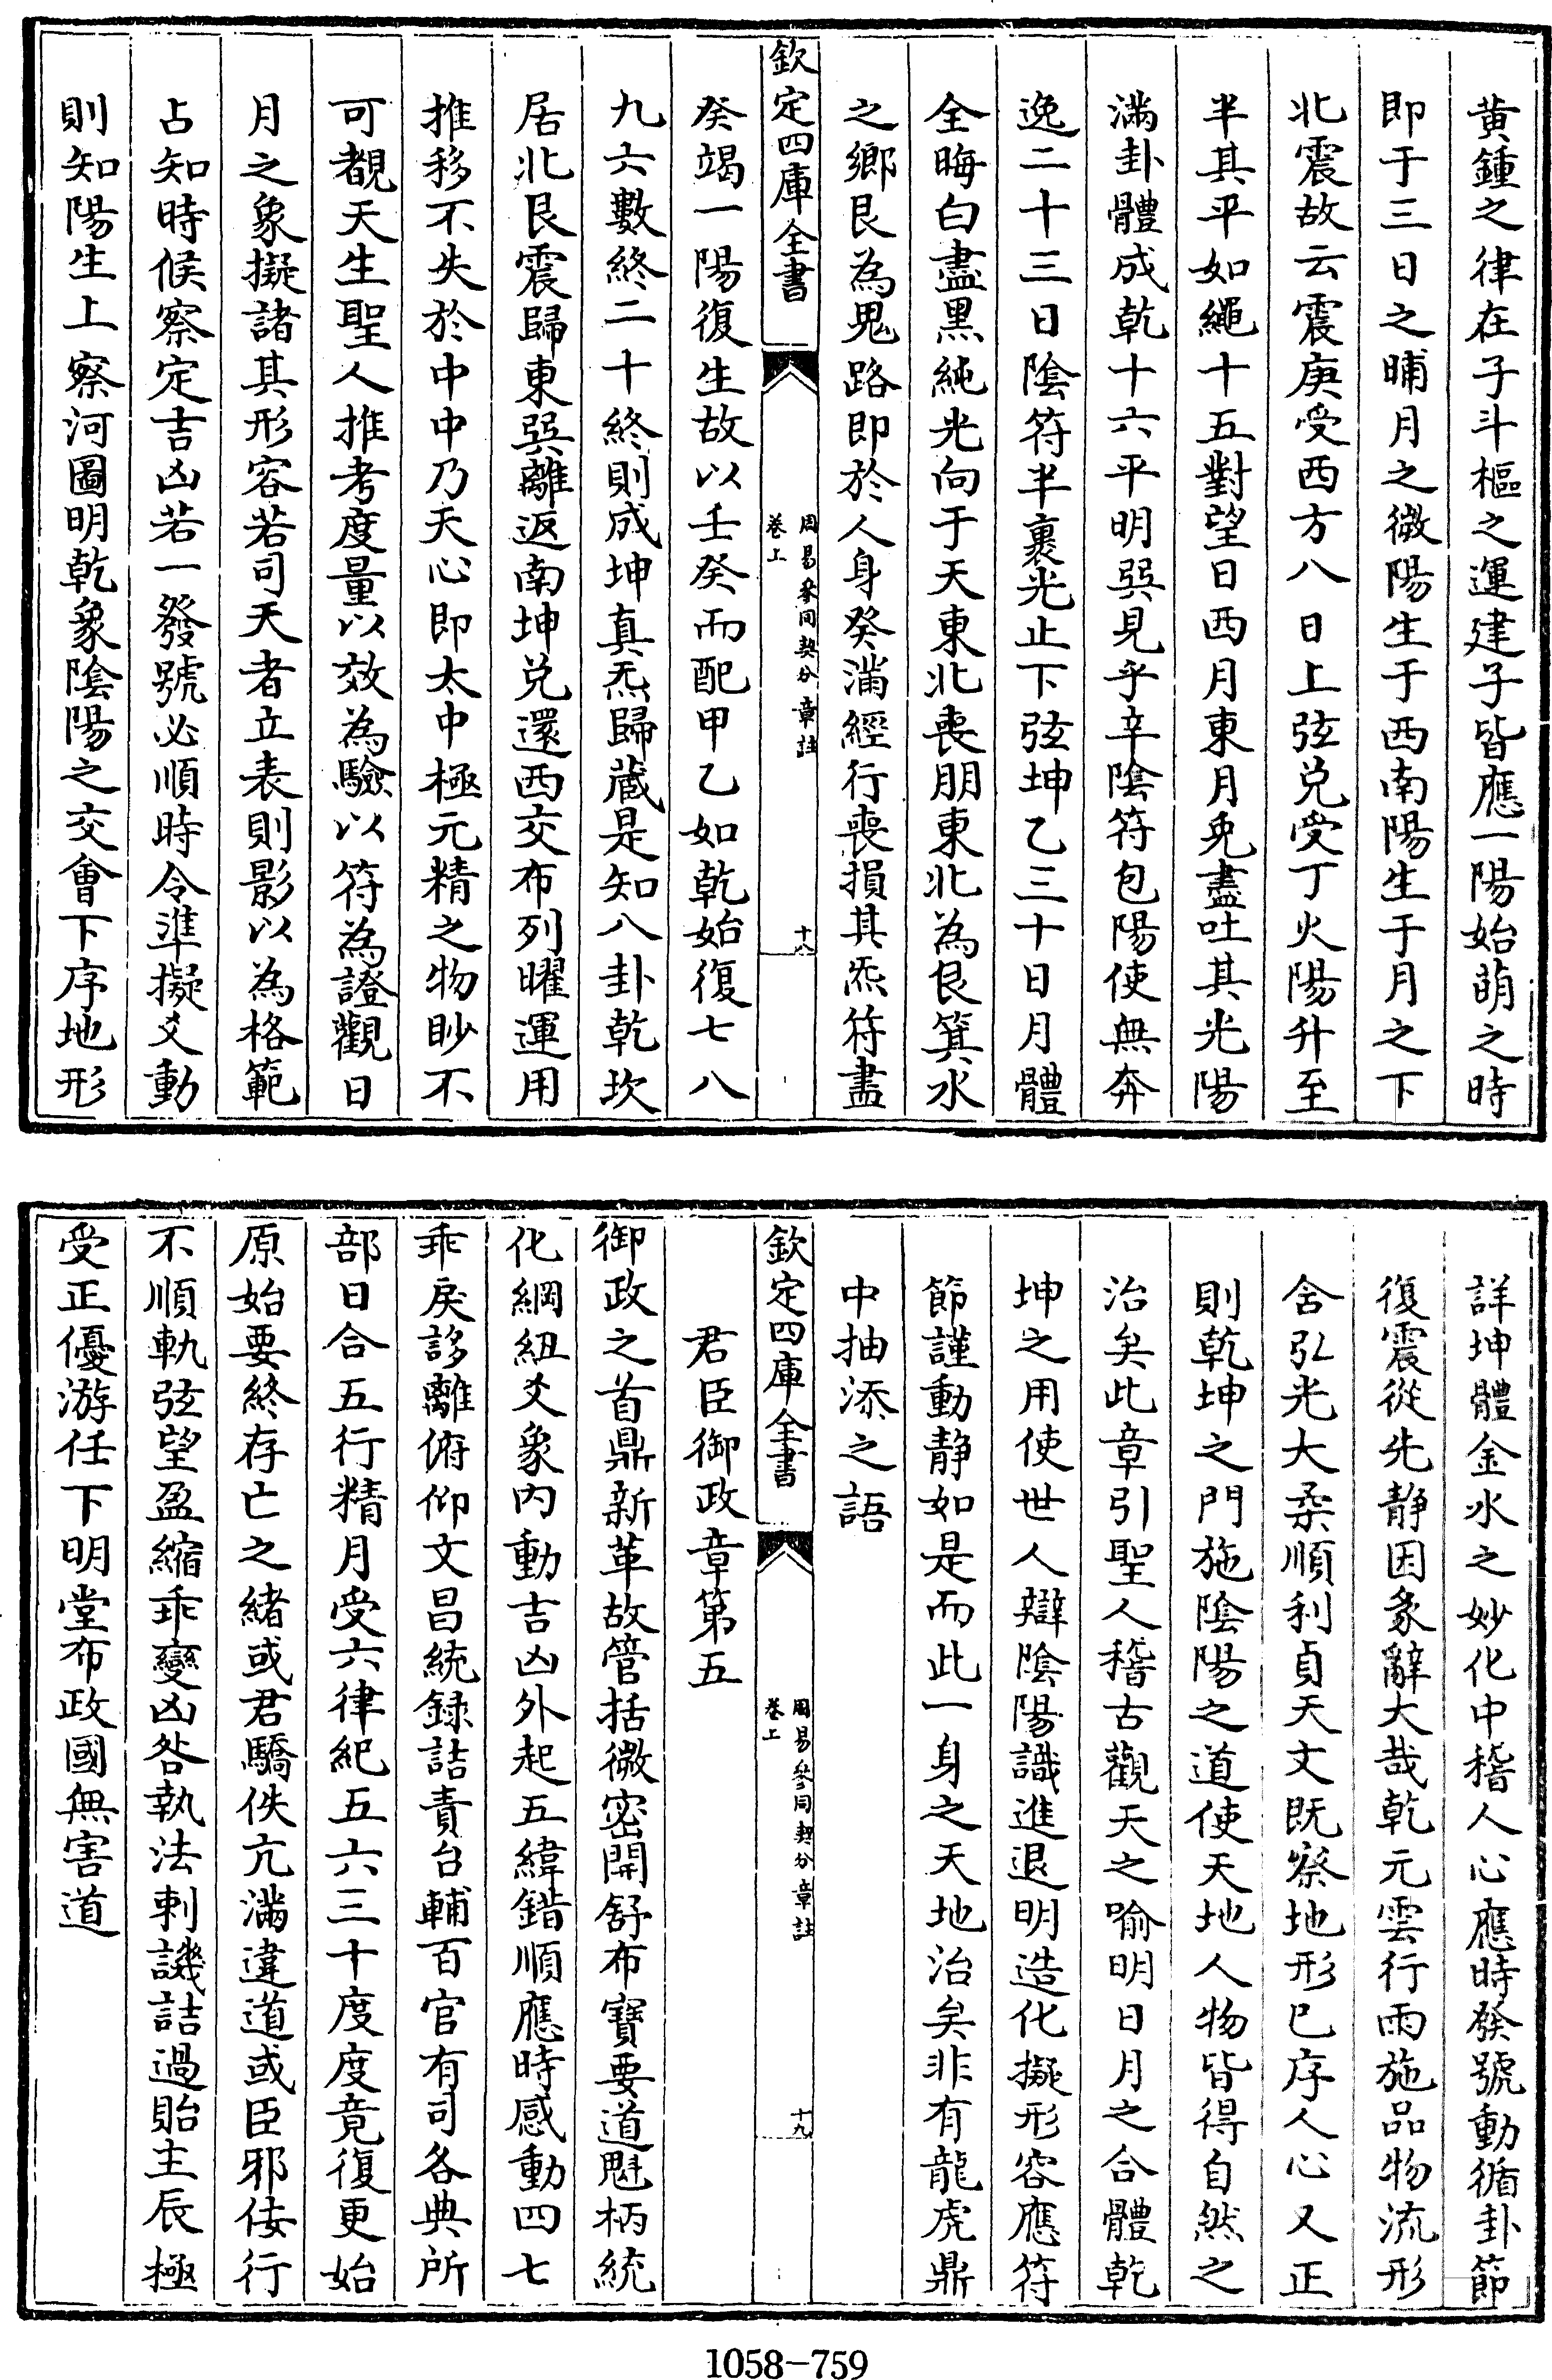 黄鍾之律在子斗樞之運建子皆應一陽始萌之時
即于三日之晡月之微陽生于西南陽生于月之下
北震故云震庚受西方八日上弦兑受丁火陽升至
半其平如繩十五對望日西月東月兔盡吐其光陽
滿卦體成乾十六平明巽見乎辛陰符包陽使無奔
逸二十三日陰符半裹光止下弦坤乙三十日月體
全晦白盡黒純光向于天東北喪朋東北為艮箕水
之鄉艮為鬼路即於人身癸滿經行喪損其炁符盡
欽定四庫全書
周易參同契分章註
卷上
十八
癸竭一陽復生故以壬癸而配甲乙如乾始復七八
九六數終二十終則成坤真炁歸藏是知八卦乾坎
居北艮震歸東巽離返南坤兑還西交布列曜運用
推移不失於中中乃天心即太中極元精之物眇不
可覩天生聖人推考度量以效為驗以符為證觀日
月之象擬諸其形容若司天者立表則影以為格範
占知時候察定吉凶若一發號必順時令準擬爻動
則知陽生上察河圖明乾象陰陽之交會下序地形
詳坤體金水之妙化中稽人心應時發號動循卦節
復震從先静因彖辭大哉乾元雲行雨施品物流形
含弘光大柔順利貞天文既察地形已序人心又正
則乾坤之門施陰陽之道使天地人物皆得自然之
治矣此章引聖人稽古觀天之喻明日月之合體乾
坤之用使世人辯陰陽識進退明造化擬形容應符
節謹動静如是而此一身之天地治矣非有龍虎鼎
中抽添之語
欽定四庫全書
周易參同契分章註
卷上
十九
君臣御政章第五
御政之首鼎新革故管括微密開舒布寶要道魁柄統
化綱紐爻象内動吉凶外起五緯錯順應時感動四七
乖戾誃離俯仰文昌統録詰責台輔百官有司各典所
部日合五行精月受六律紀五六三十度度竟復更始
原始要終存亡之緒或君驕佚亢滿違道或臣邪佞行
不順軌弦望盈縮乖變凶咎執法刺譏詰過貽主辰極
受正優游任下明堂布政國無害道
1058-759